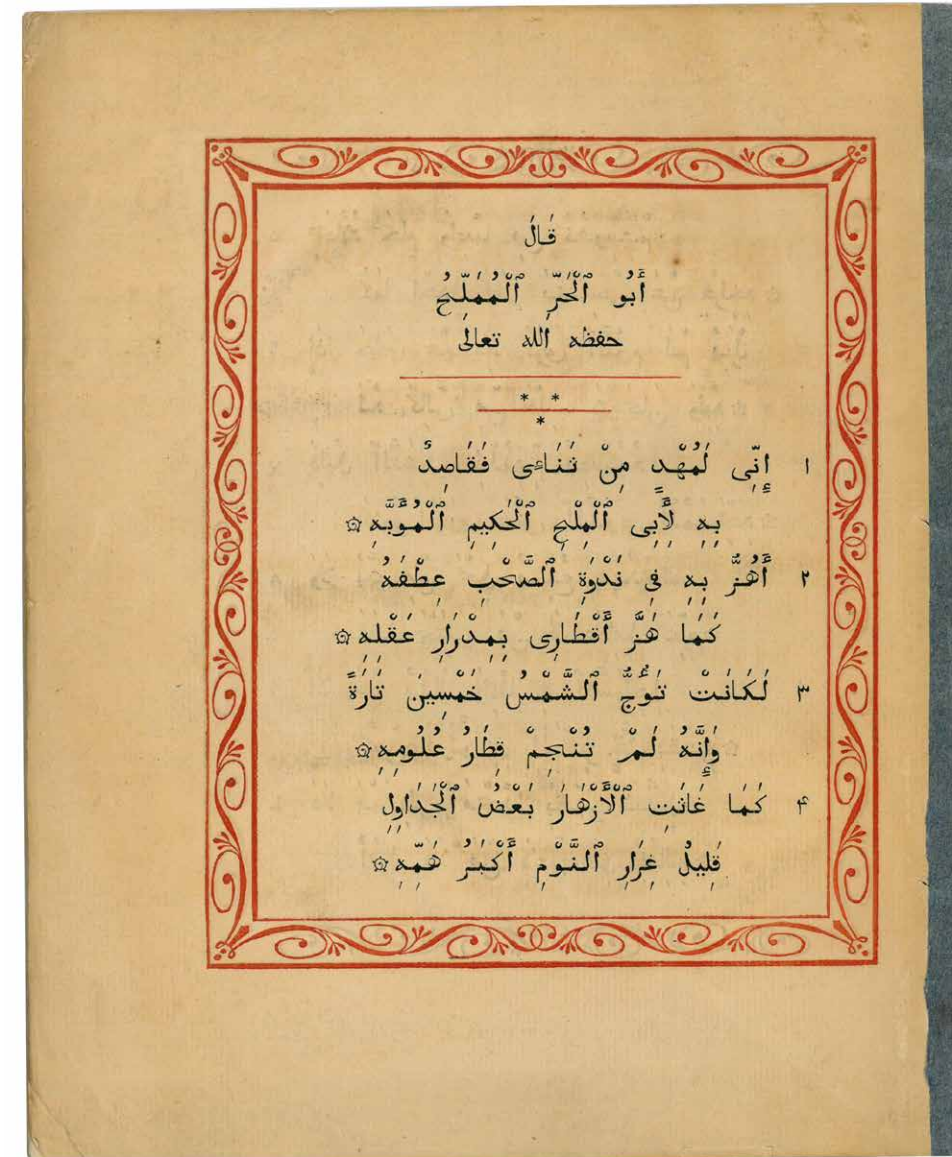 قَالَ
أَبُو ٱلْحُرِّ ٱلْمُمَلِّحُ
حفظه ٱلله تعالى
* *
*
١ إِنِّى لَمُهْدٍ مِنْ ثَنَاءى فَقَاصِدٌ
بِهِ لِأَبِى ٱلْمِلْحِ ٱلْحَكِيمِ ٱلْمُوَبَّهِ ۞
٢ أَهُزُّ بِهِ فِى نَدْوَةِ ٱلصَّحْبِ عِطْفَهُ
كَمَا هَزَّ أَقْطَارِى بِمِدْرَارِ عَقْلِهِ ۞
٣ لَكَانَتْ تَؤُجُّ ٱلشَّمْسُ خَمْسِينَ تَارَةً
وَإِنَّهُ لَمْ تُنْجِمْ قِطَارُ عُلُومِهِ ۞
۴ كَمَا غَاثَتِ ٱلْأَزْهَارَ بَعْضُ ٱلْجَدَاوِلِ
قَلِيلُ غِرَارِ ٱلنَّوْمِ أَكْبَرُ هَمِّهِ ۞